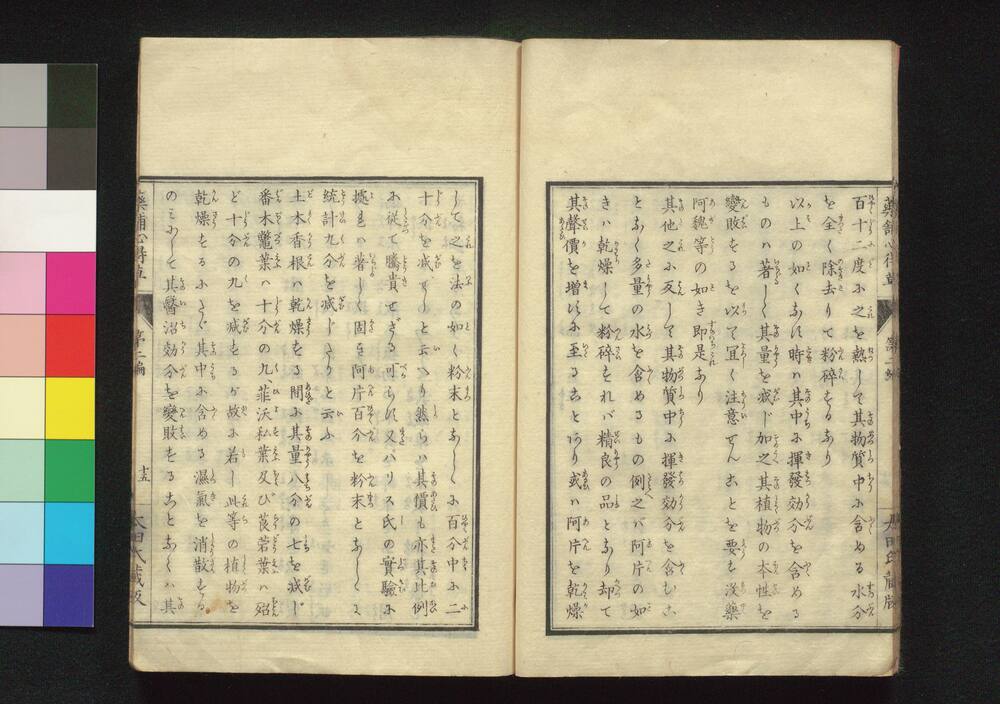 百十二度ニ之を熱して其物質中ニ含める水分
を全く除去りて粉碎するなり
以上の如くなす時ハ其中ニ揮發効分を含める
ものハ著しく其量を减じ加之其植物の本性を
變敗するを以て冝く注意せんことを要す没藥
阿魏等の如き即是なり
其他之ニ反して其物質中ニ揮發効分を含むこ
となく多量の水を含めるもの例之バ阿片の如
きハ乾燥して粉碎すれバ精良の品となり却て
其聲價を増すニ至ることあり或ハ阿片を乾燥
して之を法の如く粉末となしゝニ百分中ニ二
十分を减ぜしと云へり然らハ其價も亦其比例
ニ從て騰貴せざる可らす又パリス氏の實驗ニ
據れハ著しく固き阿片百分を粉末となしゝに
統計九分を减じたりと云ふ
土木香根ハ乾燥する間ニ其量八分の七を减じ
番木鼈葉ハ十分の九、菲沃私葉及び莨菪葉ハ殆
ど十分の九を减するが故ニ若し此等の植物を
乾燥するニ方て其中ニ含める濕氣を消散する
のミにして其醫治効分を變敗することなくハ其
藥鋪心得草
第二編
十五
太田氏藏版